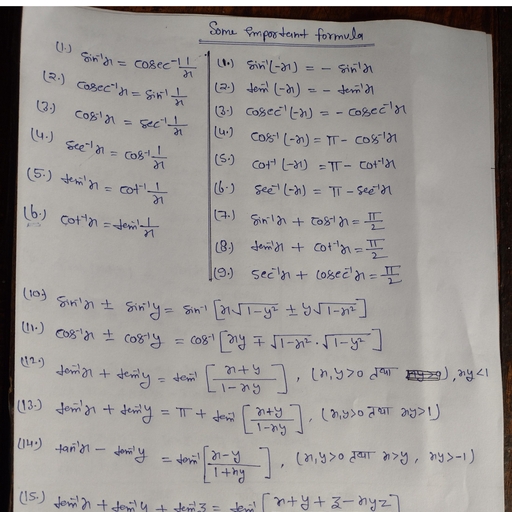 Some Important formula
(1.) sin⁻¹x = cosec⁻¹ 1/x
(2.) cosec⁻¹x = sin⁻¹ 1/x
(3.) cos⁻¹x = sec⁻¹ 1/x
(4.) sec⁻¹x = cos⁻¹ 1/x
(5.) tan⁻¹x = cot⁻¹ 1/x
(6.) cot⁻¹x = tan⁻¹ 1/x
(1.) sin⁻¹(-x) = - sin⁻¹x
(2.) tan⁻¹(-x) = - tan⁻¹x
(3.) cosec⁻¹(-x) = - cosec⁻¹x
(4.) cos⁻¹(-x) = π - cos⁻¹x
(5.) cot⁻¹(-x) = π - cot⁻¹x
(6.) sec⁻¹(-x) = π - sec⁻¹x
(7.) sin⁻¹x + cos⁻¹x = π/2
(8.) tan⁻¹x + cot⁻¹x = π/2
(9.) sec⁻¹x + cosec⁻¹x = π/2
(10.) sin⁻¹x ± sin⁻¹y = sin⁻¹ [x√1-y² ± y√1-x²]
(11.) cos⁻¹x ± cos⁻¹y = cos⁻¹ [xy ∓ √1-x² · √1-y²]
(12.) tan⁻¹x + tan⁻¹y = tan⁻¹ [x+y / 1-xy], (x,y>0 तथा ), xy<1
(13.) tan⁻¹x + tan⁻¹y = π + tan⁻¹ [x+y / 1-xy], (x,y>0 तथा xy>1)
(14.) tan⁻¹x - tan⁻¹y = tan⁻¹ [x-y / 1+xy], (x,y>0 तथा x>y, xy>-1)
(15.) tan⁻¹x + tan⁻¹y + tan⁻¹z = tan⁻¹ [x+y+z-xyz